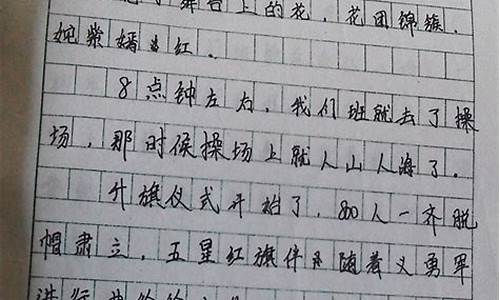 舞台上的花，花团锦簇，
婉紫嫣红。
8点钟左右，我们班就去了操
场，那时候操场上就人山人海了。
升旗仪式开始了，800人一齐脱
帽肃立，五星红旗伴随着义勇军
进行曲